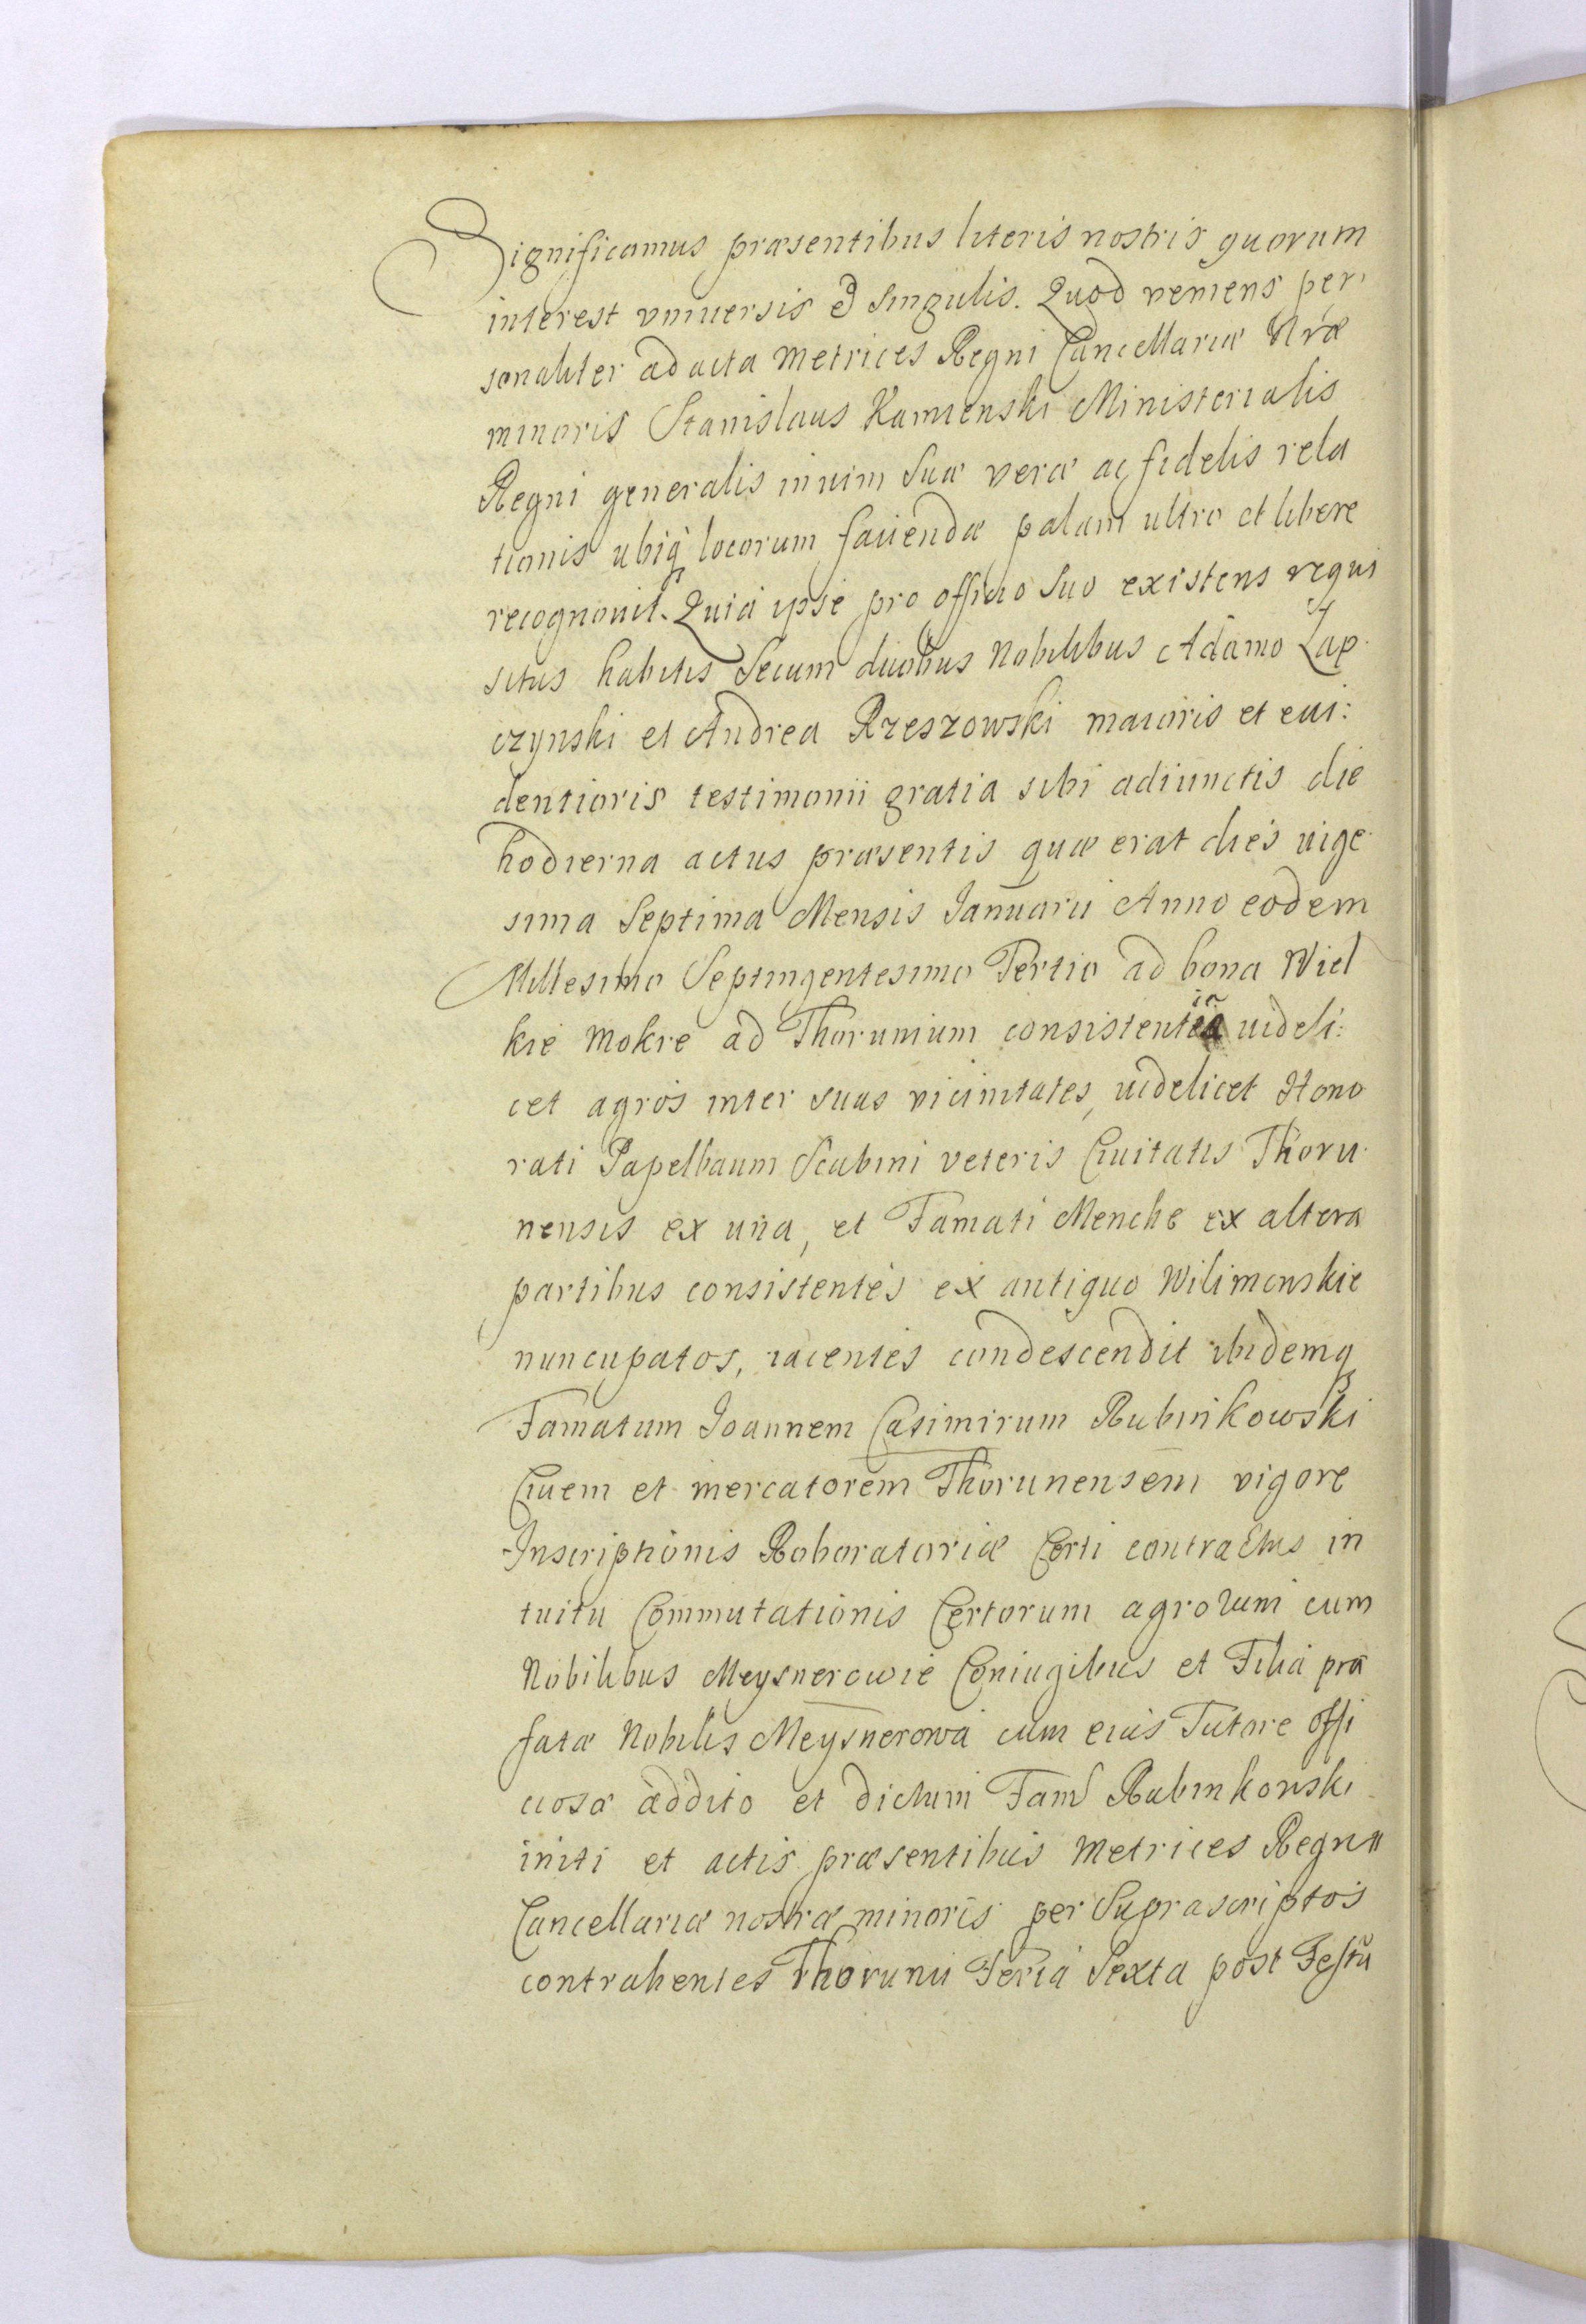 Significamus præsentibus literis nostris quorum
interest vniuersis et singulis. Quod veniens per
sonaliter ad acta Metrices Regni Cancellariæ Nræ
minoris Stanislaus Kamienski Ministerialis
Regni generalis in uim Suæ veræ ac fidelis rela
tionis ubiq locorum faciendæ palam ultro et libere
recognouit. Quia ipse pro officio Suo existens requi
situs habitis Secum duobus Nobilibus Adamo Łap
czynski et Andrea Rzeszowski maioris et eui:
dentioris testimonii gratia sibi adiunctis die
hodierna actus præsentis quæ erat dies uige
sima Septima Mensis Januarii Anno eodem
Millesimo Septingentesimo Tertio ad bona Wiel
kie Mokre ad Thorunium consistentia uideli:
cet agros inter suas vicinitates, uidelicet Hono
rati Papelbaum Scabini veteris Ciuitatis Thoru
nensis ex una, et Famati Menche ex altera
partibus consistentes ex antiquo Wilimonskie
nuncupatos, iacentes condescendit ibidemq
Famatum Joannem Casimirum Rubinkowski
Ciuem et mercatorem Thorunensem vigore
Inscriptionis Roboratoriæ Certi contractus in
tuitu Commutationis Certorum agrorum cum
Nobilibus Meysnerowie Coniugibus et Filia præ
fatæ Nobilis Meysnerowa cum eius Tutore offi
ciosæ addito et dictum Fam Rubinkowski
initi et actis præsentibus Metrices Regni
Cancellariæ nostræ minoris per Suprascriptos
contrahentes Thorunii Feria Sexta post Festũ